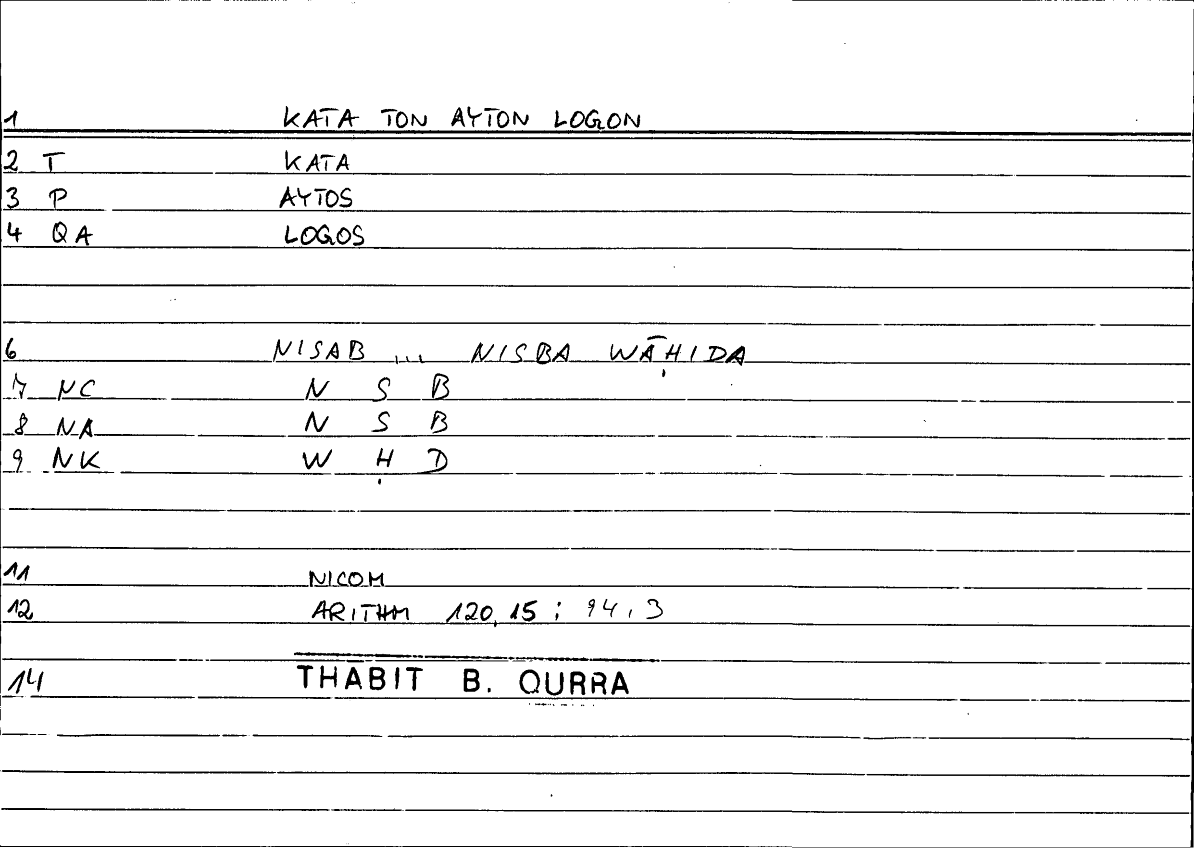 1 KATA TON AYTON LOGON
2 T KATA
3 P AYTOS
4 QA LOGOS
6 NISAB ... NISBA WĀḤIDA
7 NC N S B
8 NA N S B
9 NK W Ḥ D
11 NICOM
12 ARITHM 120,15; 94,3
14 THABIT B. QURRA